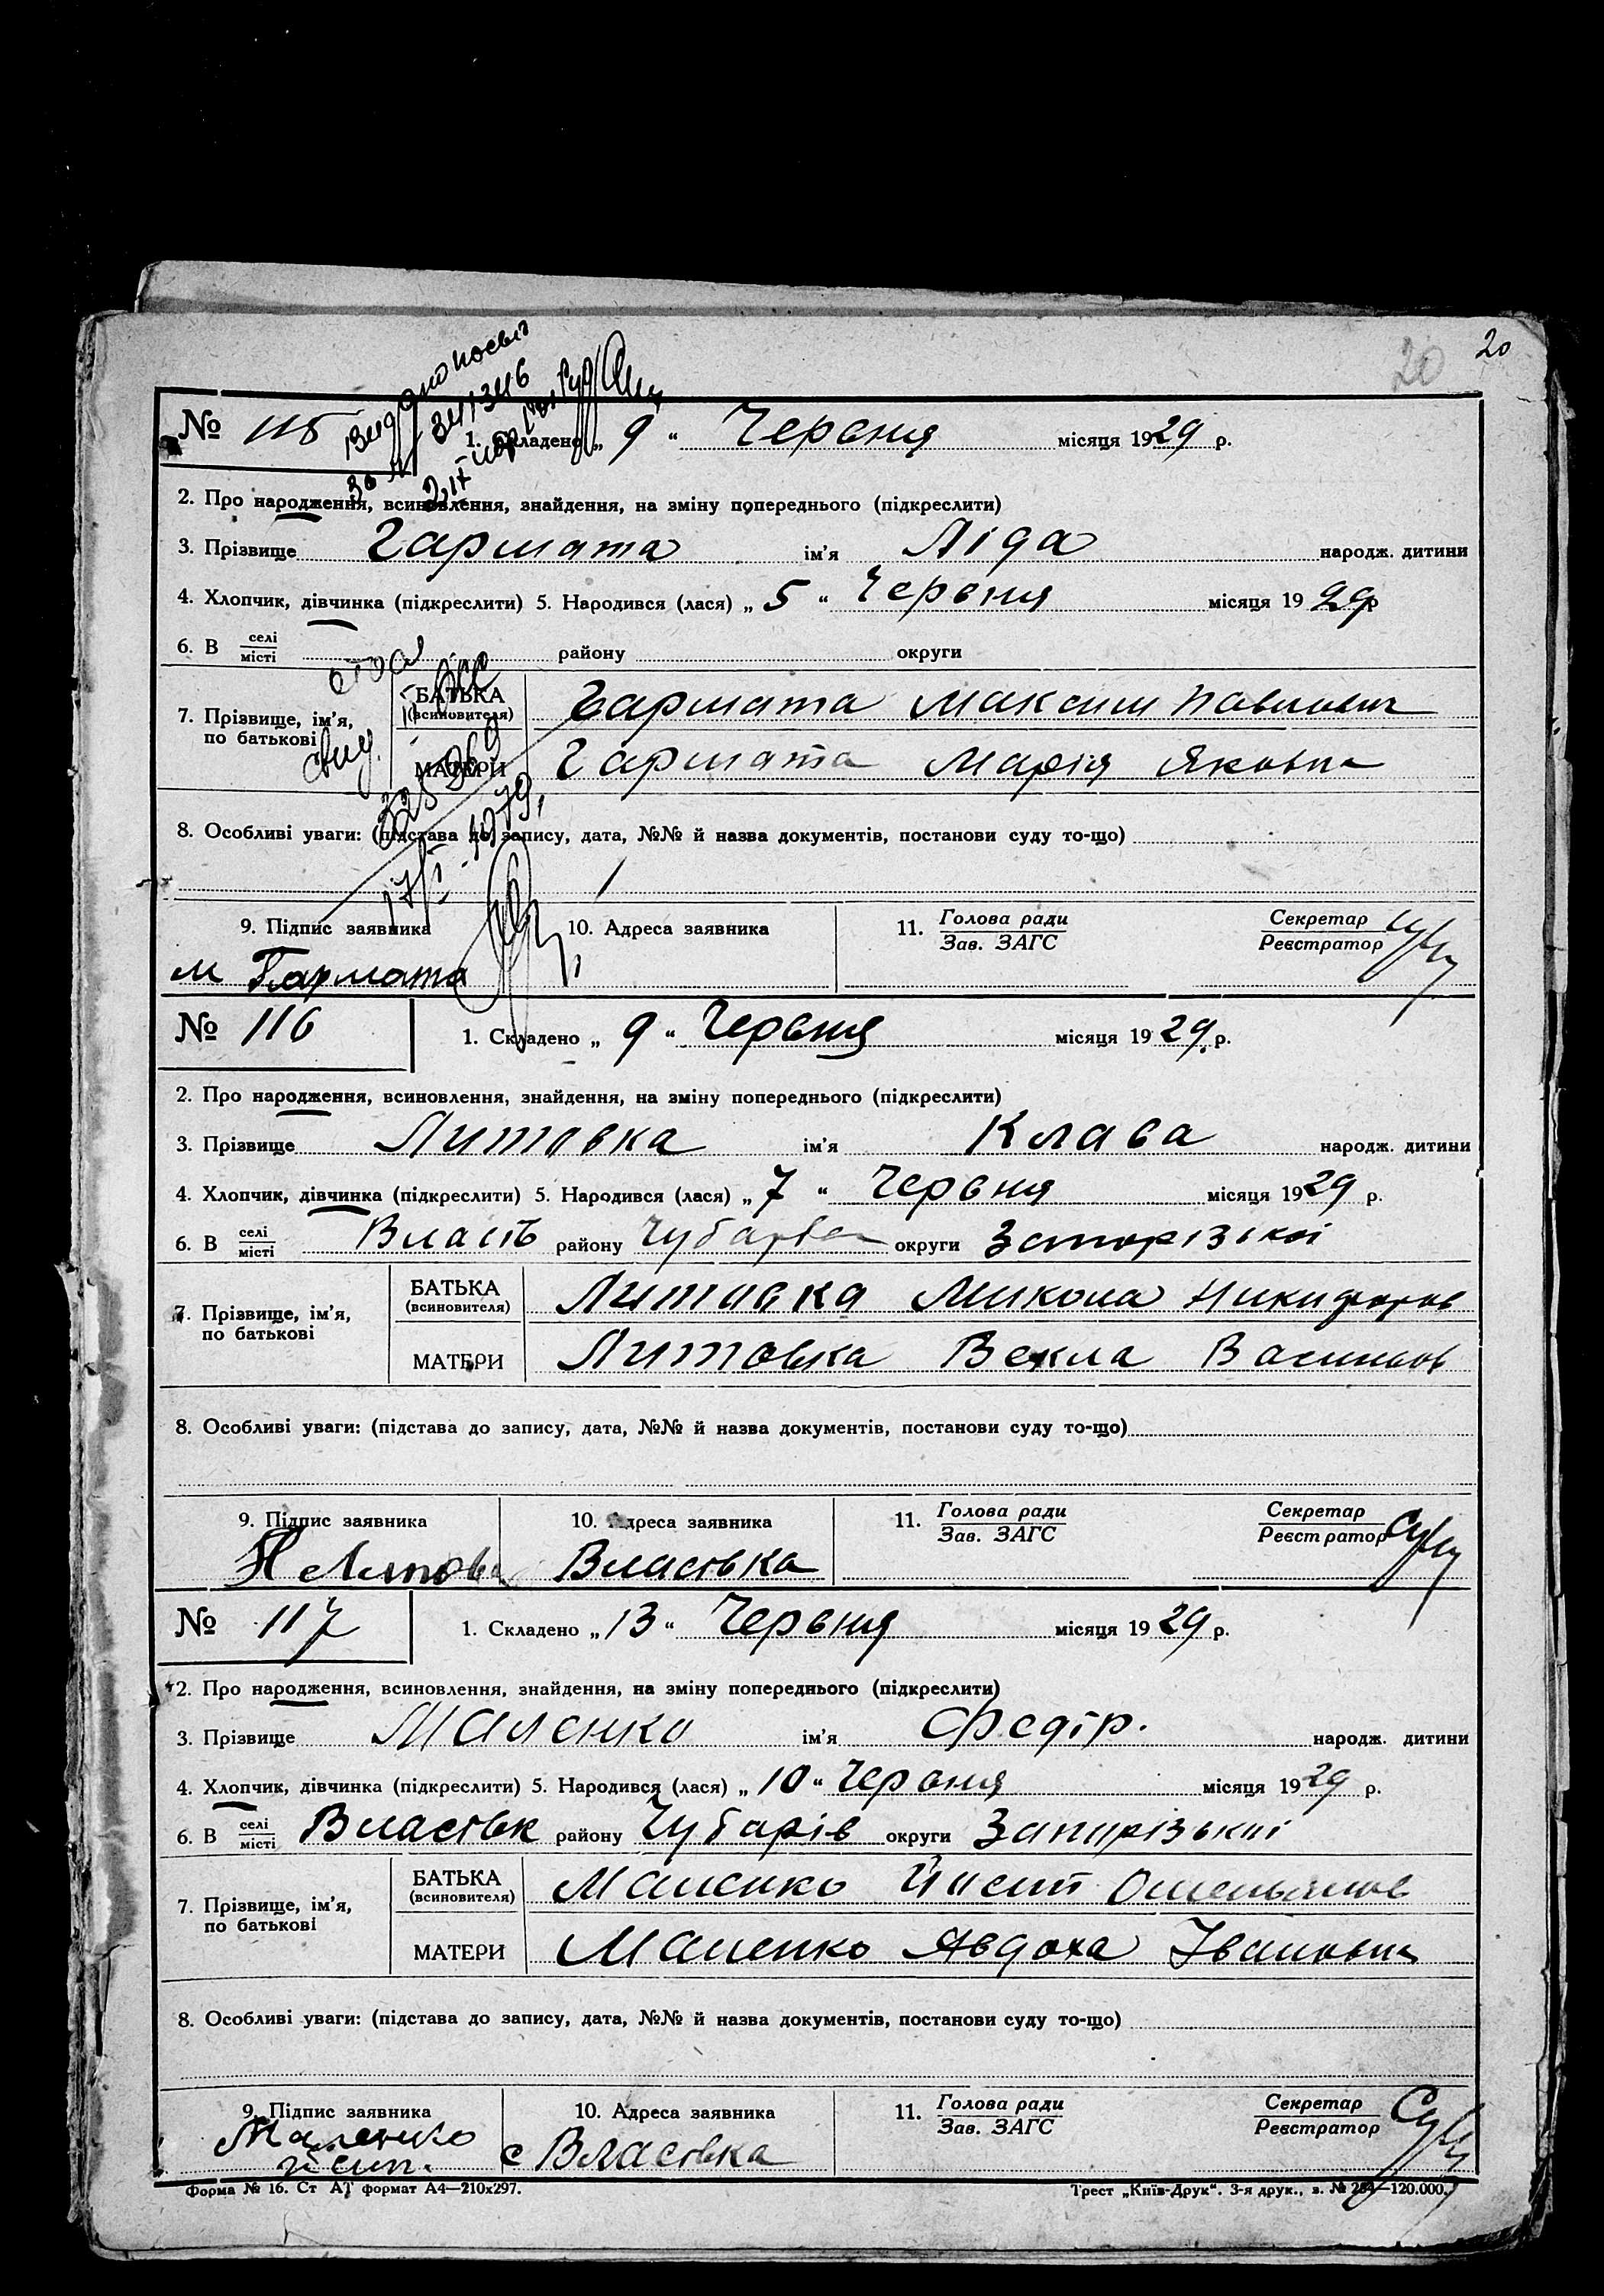 20 20
№ 115 1. Складено „ 9 “ Червня місяця 1929 р.
2. Про народження, всиновлення, знайдення, на зміну попереднього (підкреслити)
3. Прізвище Гармата ім'я Ліда народж. дитини
4. Хлопчик, дівчинка (підкреслити) 5. Народився (лася) „ 5 “ Червня місяця 19 29 р
6. В селі місті району округи
7. Прізвище, ім'я, по батькові БАТЬКА (всиновителя) Гармата Максим Павлович
МАТЕРИ Гармата Марія Яковна
8. Особливі уваги: (підстава до запису, дата, №№ й назва документів, постанови суду то-що)
9. Підпис заявника 10. Адреса заявника 11. Голова ради Зав. ЗАГС Секретар Реєстратор
М Гармата
№ 116 1. Складено „ 9 “ Червня місяця 19 29 р.
2. Про народження, всиновлення, знайдення, на зміну попереднього (підкреслити)
3. Прізвище Литовка ім'я Клава народж. дитини
4. Хлопчик, дівчинка (підкреслити) 5. Народився (лася) „ 7 “ Червня місяця 1929 р.
6. В селі місті району округи Запорізької
7. Прізвище, ім'я, по батькові БАТЬКА (всиновителя) Литовка Микола Никифоров
МАТЕРИ Литовка Векла Васильов
8. Особливі уваги: (підстава до запису, дата, №№ й назва документів, постанови суду то-що)
9. Підпис заявника 10. Адреса заявника 11. Голова ради Зав. ЗАГС Секретар Реєстратор
Власівка
№ 117 1. Складено „ 13 “ Червня місяця 19 29 р.
2. Про народження, всиновлення, знайдення, на зміну попереднього (підкреслити)
3. Прізвище Маленко ім'я Федір. народж. дитини
4. Хлопчик, дівчинка (підкреслити) 5. Народився (лася) „ 10 “ Червня місяця 1929 р.
6. В селі місті Власівк району Чубарів округи Запорізької
7. Прізвище, ім'я, по батькові БАТЬКА (всиновителя) Маленко Йосип Омельянов
МАТЕРИ Маленко Явдоха Івановна
8. Особливі уваги: (підстава до запису, дата, №№ й назва документів, постанови суду то-що)
9. Підпис заявника 10. Адреса заявника 11. Голова ради Зав. ЗАГС Секретар Реєстратор
Маленко с Власівка
Форма № 16. Ст АТ формат А4—210х297. Трест „Київ-Друк“. 3-я друк., з. № 264—120.000.